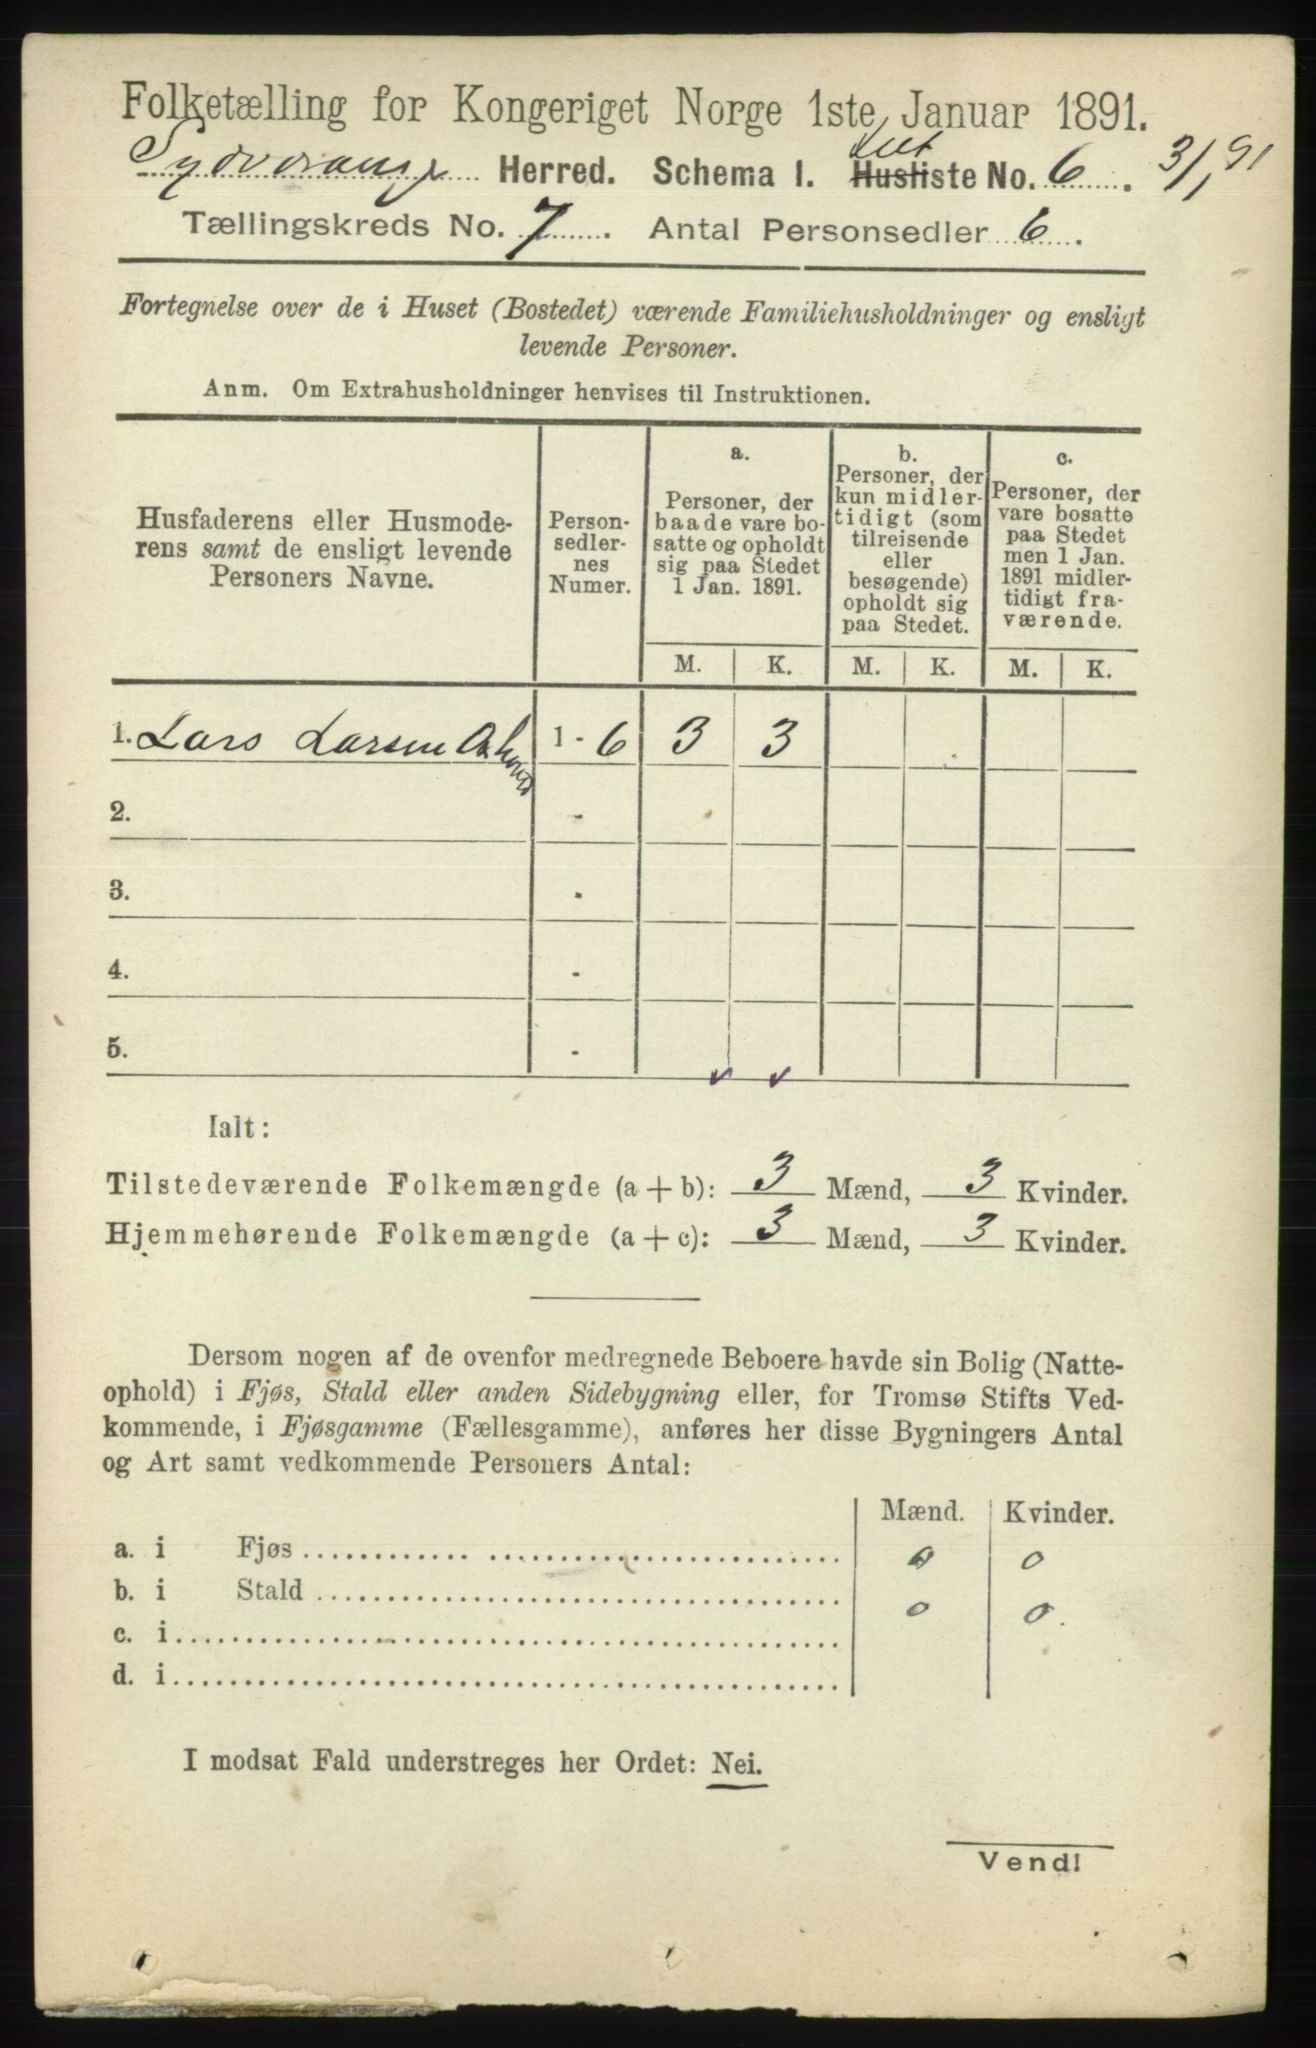 Folketælling for Kongeriget Norge 1ste Januar 1891.
Sydvaranger Herred. Schema I. Husliste No. 6. 3/1 91
Tællingskreds No. 7. Antal Personsedler 6.
Fortegnelse over de i Huset (Bostedet) værende Familiehusholdninger og ensligt
levende Personer.
Anm. Om Extrahusholdninger henvises til Instruktionen.
Husfaderens eller Husmode-
rens samt de ensligt levende
Personers Navne.
Person-
sedler-
nes
Numer.
a.
Personer, der
baade vare bo-
satte og opholdt
sig paa Stedet
1 Jan. 1891.
b.
Personer, der
kun midler-
tidigt (som
tilreisende
eller
besøgende)
opholdt sig
paa Stedet.
c.
Personer, der
vare bosatte
paa Stedet
men 1 Jan.
1891 midler-
tidigt fra-
værende.
M. K. M. K. M. K.
1. Lars Larsen 1 - 6 3 3
2. -
3. -
4. -
5. -
Ialt:
Tilstedeværende Folkemængde (a + b): 3 Mænd, 3 Kvinder.
Hjemmehørende Folkemængde (a + c): 3 Mænd, 3 Kvinder.
Dersom nogen af de ovenfor medregnede Beboere havde sin Bolig (Natte-
ophold) i Fjøs, Stald eller anden Sidebygning eller, for Tromsø Stifts Ved-
kommende, i Fjøsgamme (Fællesgamme), anføres her disse Bygningers Antal
og Art samt vedkommende Personers Antal:
Mænd. Kvinder.
a. i Fjøs 0 0
b. i Stald 0 0
c. i
d. i
I modsat Fald understreges her Ordet: Nei.
Vend!